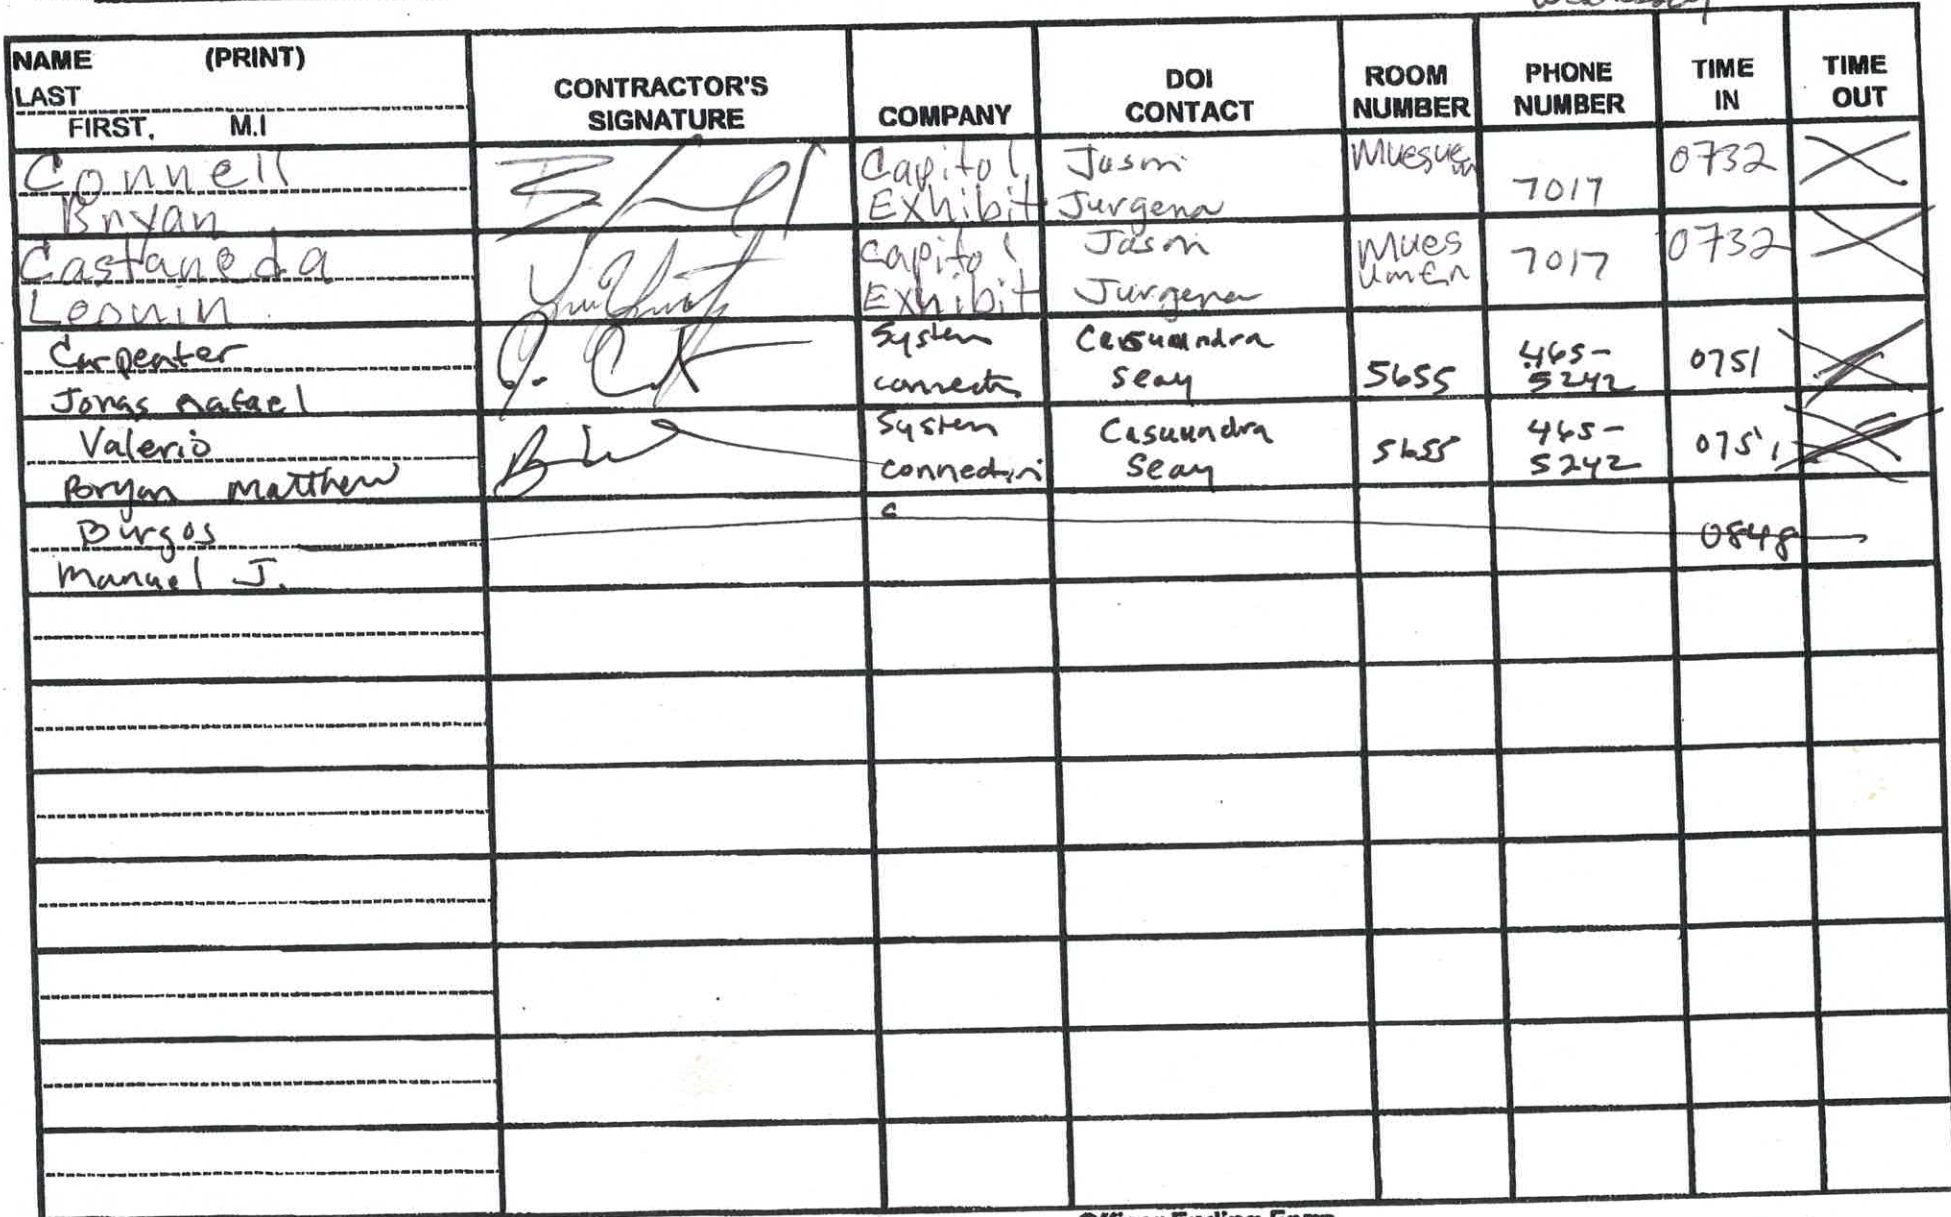 NAME (PRINT)
LAST
FIRST, M.I
CONTRACTOR'S
SIGNATURE
COMPANY
DOI
CONTACT
ROOM
NUMBER
PHONE
NUMBER
TIME
IN
TIME
OUT
Connell
Bryan
Capitol
Exhibit
Jason
Jurgena
Muesuem
7017
0732
Castaneda
Leonin
Capitol
Exhibit
Jason
Jurgena
Mues
7017
0732
Carpenter
Jonas Rafael
System
connecti
Seay
5655
465-
5242
0751
Valerio
Bryan Matthew
System
connection
Casuundra
Seay
5655
465-
5242
0751
Burgos
Manuel J.
0848